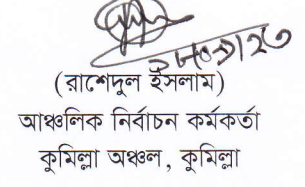 (রাশেদুল ইসলাম)
আঞ্চলিক নির্বাচন কর্মকর্তা
কুমিল্লা অঞ্চল, কুমিল্লা